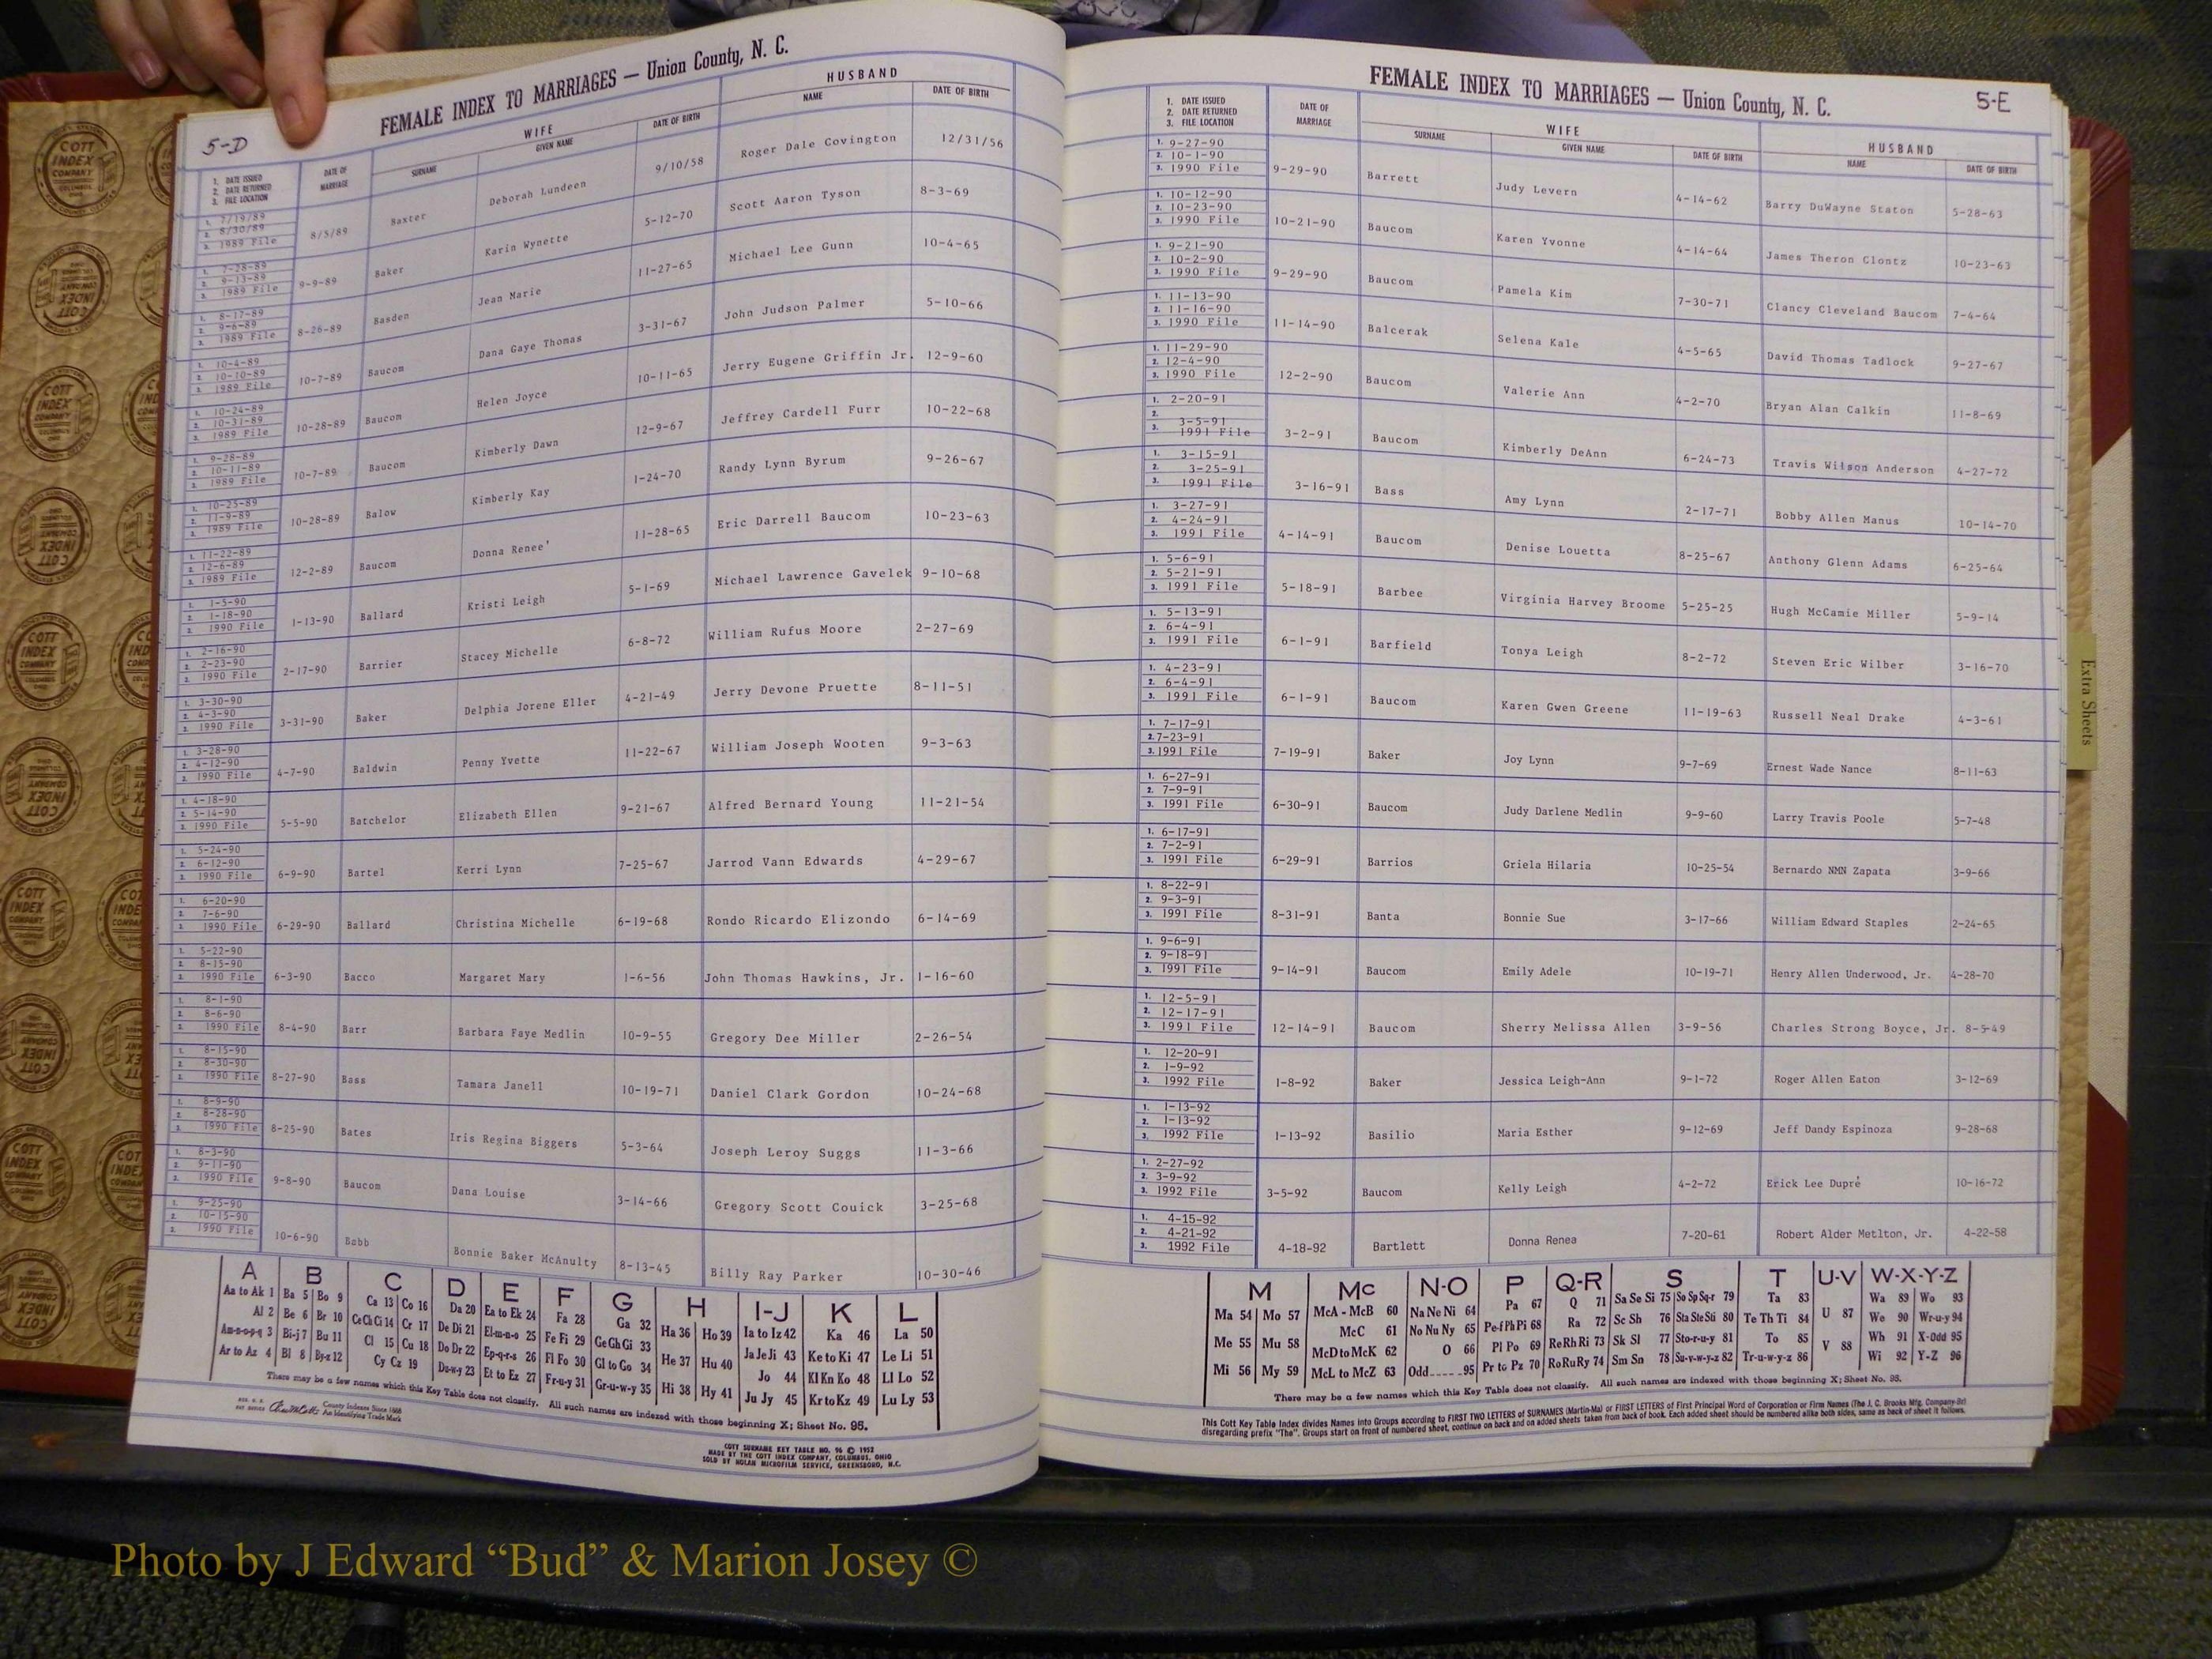 5-D
FEMALE INDEX TO MARRIAGES — Union County, N. C.
1. DATE ISSUED 2. DATE RETURNED 3. FILE LOCATION
DATE OF MARRIAGE
WIFE
SURNAME GIVEN NAME DATE OF BIRTH
HUSBAND
NAME DATE OF BIRTH
1. 7/19/89 2. 8/30/89 3. 1989 File 8/5/89 Baxter Deborah Lundeen 9/10/58 Roger Dale Covington 12/31/56
1. 7-28-89 2. 9-13-89 3. 1989 File 9-9-89 Baker Karin Wynette 5-12-70 Scott Aaron Tyson 8-3-69
1. 8-17-89 2. 9-6-89 3. 1989 File 8-26-89 Basden Jean Marie 11-27-65 Michael Lee Gunn 10-4-65
1. 10-4-89 2. 10-10-89 3. 1989 File 10-7-89 Baucom Dana Gaye Thomas 3-31-67 John Judson Palmer 5-10-66
1. 10-24-89 2. 10-31-89 3. 1989 File 10-28-89 Baucom Helen Joyce 10-11-65 Jerry Eugene Griffin Jr. 12-9-60
1. 9-28-89 2. 10-11-89 3. 1989 File 10-7-89 Baucom Kimberly Dawn 12-9-67 Jeffrey Cardell Furr 10-22-68
1. 10-25-89 2. 11-9-89 3. 1989 File 10-28-89 Balow Kimberly Kay 1-24-70 Randy Lynn Byrum 9-26-67
1. 11-22-89 2. 12-6-89 3. 1989 File 12-2-89 Baucom Donna Renee' 11-28-65 Eric Darrell Baucom 10-23-63
1. 1-5-90 2. 1-18-90 3. 1990 File 1-13-90 Ballard Kristi Leigh 5-1-69 Michael Lawrence Gavelek 9-10-68
1. 2-16-90 2. 2-23-90 3. 1990 File 2-17-90 Barrier Stacey Michelle 6-8-72 William Rufus Moore 2-27-69
1. 3-30-90 2. 4-3-90 3. 1990 File 3-31-90 Baker Delphia Jorene Eller 4-21-49 Jerry Devone Pruette 8-11-51
1. 3-28-90 2. 4-12-90 3. 1990 File 4-7-90 Baldwin Penny Yvette 11-22-67 William Joseph Wooten 9-3-63
1. 4-18-90 2. 5-14-90 3. 1990 File 5-5-90 Batchelor Elizabeth Ellen 9-21-67 Alfred Bernard Young 11-21-54
1. 5-24-90 2. 6-12-90 3. 1990 File 6-9-90 Bartel Kerri Lynn 7-25-67 Jarrod Vann Edwards 4-29-67
1. 6-20-90 2. 7-6-90 3. 1990 File 6-29-90 Ballard Christina Michelle 6-19-68 Rondo Ricardo Elizondo 6-14-69
1. 5-22-90 2. 8-15-90 3. 1990 File 6-3-90 Bacco Margaret Mary 1-6-56 John Thomas Hawkins, Jr. 1-16-60
1. 8-1-90 2. 8-6-90 3. 1990 File 8-4-90 Barr Barbara Faye Medlin 10-9-55 Gregory Dee Miller 2-26-54
1. 8-15-90 2. 8-30-90 3. 1990 File 8-27-90 Bass Tamara Janell 10-19-71 Daniel Clark Gordon 10-24-68
1. 8-9-90 2. 8-28-90 3. 1990 File 8-25-90 Bates Iris Regina Biggers 5-3-64 Joseph Leroy Suggs 11-3-66
1. 8-3-90 2. 9-11-90 3. 1990 File 9-8-90 Baucom Dana Louise 3-14-66 Gregory Scott Couick 3-25-68
1. 9-25-90 2. 10-15-90 3. 1990 File 10-6-90 Babb Bonnie Baker McAnulty 8-13-45 Billy Ray Parker 10-30-46
A B C D E F G H I-J K L
Aa to Ak 1 Ba 5 Bo 9 Ca 13 Co 16 Da 20 Ea to Ek 24 Fa 28 Ga 32 Ha 36 Ho 39 Ia to Iz 42 Ka 46 La 50
Al 2 Be 6 Br 10 Ce Ch Ci 14 Cr 17 De Di 21 El-m-n-o 25 Fe Fi 29 Ge Gh Gi 33 He 37 Hu 40 Ja Je Ji 43 Ke to Ki 47 Le Li 51
Am-n-o-p-q 3 Bi-j 7 Bu 11 Cl 15 Cu 18 Do Dr 22 Ep-q-r-s 26 Fl Fo 30 Gl to Go 34 Hi 38 Hy 41 Jo 44 Kl Kn Ko 48 Ll Lo 52
Ar to Az 4 Bl 8 By-z 12 Cy Cz 19 Du-w-y 23 Et to Ez 27 Fr-u-y 31 Gr-u-w-y 35 Ju Jy 45 Kr to Kz 49 Lu Ly 53
There may be a few names which this Key Table does not classify. All such names are indexed with those beginning X; Sheet No. 95.
County Indexes Since 1888
An Identifying Trade Mark
COTT SURNAME KEY TABLE NO. 96 © 1952
MADE BY THE COTT INDEX COMPANY, COLUMBUS, OHIO
SOLD BY NOLAN MICROFILM SERVICE, GREENSBORO, N.C.
5-E
FEMALE INDEX TO MARRIAGES — Union County, N. C.
1. DATE ISSUED 2. DATE RETURNED 3. FILE LOCATION
DATE OF MARRIAGE
WIFE
SURNAME GIVEN NAME DATE OF BIRTH
HUSBAND
NAME DATE OF BIRTH
1. 9-27-90 2. 10-1-90 3. 1990 File 9-29-90 Barrett Judy Levern 4-14-62 Barry DuWayne Staton 5-28-63
1. 10-12-90 2. 10-23-90 3. 1990 File 10-21-90 Baucom Karen Yvonne 4-14-64 James Theron Clontz 10-23-63
1. 9-21-90 2. 10-2-90 3. 1990 File 9-29-90 Baucom Pamela Kim 7-30-71 Clancy Cleveland Baucom 7-4-64
1. 11-13-90 2. 11-16-90 3. 1990 File 11-14-90 Balcerak Selena Kale 4-5-65 David Thomas Tadlock 9-27-67
1. 11-29-90 2. 12-4-90 3. 1990 File 12-2-90 Baucom Valerie Ann 4-2-70 Bryan Alan Calkin 11-8-69
1. 2-20-91 2. 3-5-91 3. 1991 File 3-2-91 Baucom Kimberly DeAnn 6-24-73 Travis Wilson Anderson 4-27-72
1. 3-15-91 2. 3-25-91 3. 1991 File 3-16-91 Bass Amy Lynn 2-17-71 Bobby Allen Manus 10-14-70
1. 3-27-91 2. 4-24-91 3. 1991 File 4-14-91 Baucom Denise Louetta 8-25-67 Anthony Glenn Adams 6-25-64
1. 5-6-91 2. 5-21-91 3. 1991 File 5-18-91 Barbee Virginia Harvey Broome 5-25-25 Hugh McCamie Miller 5-9-14
1. 5-13-91 2. 6-4-91 3. 1991 File 6-1-91 Barfield Tonya Leigh 8-2-72 Steven Eric Wilber 3-16-70
1. 4-23-91 2. 6-4-91 3. 1991 File 6-1-91 Baucom Karen Gwen Greene 11-19-63 Russell Neal Drake 4-3-61
1. 7-17-91 2. 7-23-91 3. 1991 File 7-19-91 Baker Joy Lynn 9-7-69 Ernest Wade Nance 8-11-63
1. 6-27-91 2. 7-9-91 3. 1991 File 6-30-91 Baucom Judy Darlene Medlin 9-9-60 Larry Travis Poole 5-7-48
1. 6-17-91 2. 7-2-91 3. 1991 File 6-29-91 Barrios Griela Hilaria 10-25-54 Bernardo NMN Zapata 3-9-66
1. 8-22-91 2. 9-3-91 3. 1991 File 8-31-91 Banta Bonnie Sue 3-17-66 William Edward Staples 2-24-65
1. 9-6-91 2. 9-18-91 3. 1991 File 9-14-91 Baucom Emily Adele 10-19-71 Henry Allen Underwood, Jr. 4-28-70
1. 12-5-91 2. 12-17-91 3. 1991 File 12-14-91 Baucom Sherry Melissa Allen 3-9-56 Charles Strong Boyce, Jr. 8-5-49
1. 12-20-91 2. 1-9-92 3. 1992 File 1-8-92 Baker Jessica Leigh-Ann 9-1-72 Roger Allen Eaton 3-12-69
1. 1-13-92 2. 1-13-92 3. 1992 File 1-13-92 Basilio Maria Esther 9-12-69 Jeff Dandy Espinoza 9-28-68
1. 2-27-92 2. 3-9-92 3. 1992 File 3-5-92 Baucom Kelly Leigh 4-2-72 Erick Lee Dupré 10-16-72
1. 4-15-92 2. 4-21-92 3. 1992 File 4-18-92 Bartlett Donna Renea 7-20-61 Robert Alder Metlton, Jr. 4-22-58
M Mc N-O P Q-R S T U-V W-X-Y-Z
Ma 54 Mo 57 McA - McB 60 Na Ne Ni 64 Pa 67 Q 71 Sa Se Si 75 So Sp Sq-r 79 Ta 83 U 87 Wa 89 Wo 93
Me 55 Mu 58 McC 61 No Nu Ny 65 Pe-f Ph Pi 68 Ra 72 Sc Sh 76 Sta Ste Sti 80 Te Th Ti 84 V 88 We 90 Wr-u-y 94
Mi 56 My 59 McD to McK 62 O 66 Pl Po 69 Re Rh Ri 73 Sk Sl 77 Sto-r-u-y 81 To 85 Wh 91 X-Odd 95
McL to McZ 63 Odd 95 Pr to Pz 70 Ro Ru Ry 74 Sm Sn 78 Su-v-w-y-z 82 Tr-u-w-y-z 86 Wi 92 Y-Z 96
There may be a few names which this Key Table does not classify. All such names are indexed with those beginning X; Sheet No. 95.
This Cott Key Table Index divides Names into Groups according to FIRST TWO LETTERS of SURNAMES (Martin-Ma) or FIRST LETTERS of First Principal Word of Corporation or Firm Names (The J. C. Brooks Mfg. Company-Br)
disregarding prefix "The". Groups start on front of numbered sheet, continue on back and on added sheets taken from back of book. Each added sheet should be numbered alike both sides, same as back of sheet it follows.
Extra Sheets
COTT INDEX COMPANY
Photo by J Edward “Bud” & Marion Josey ©